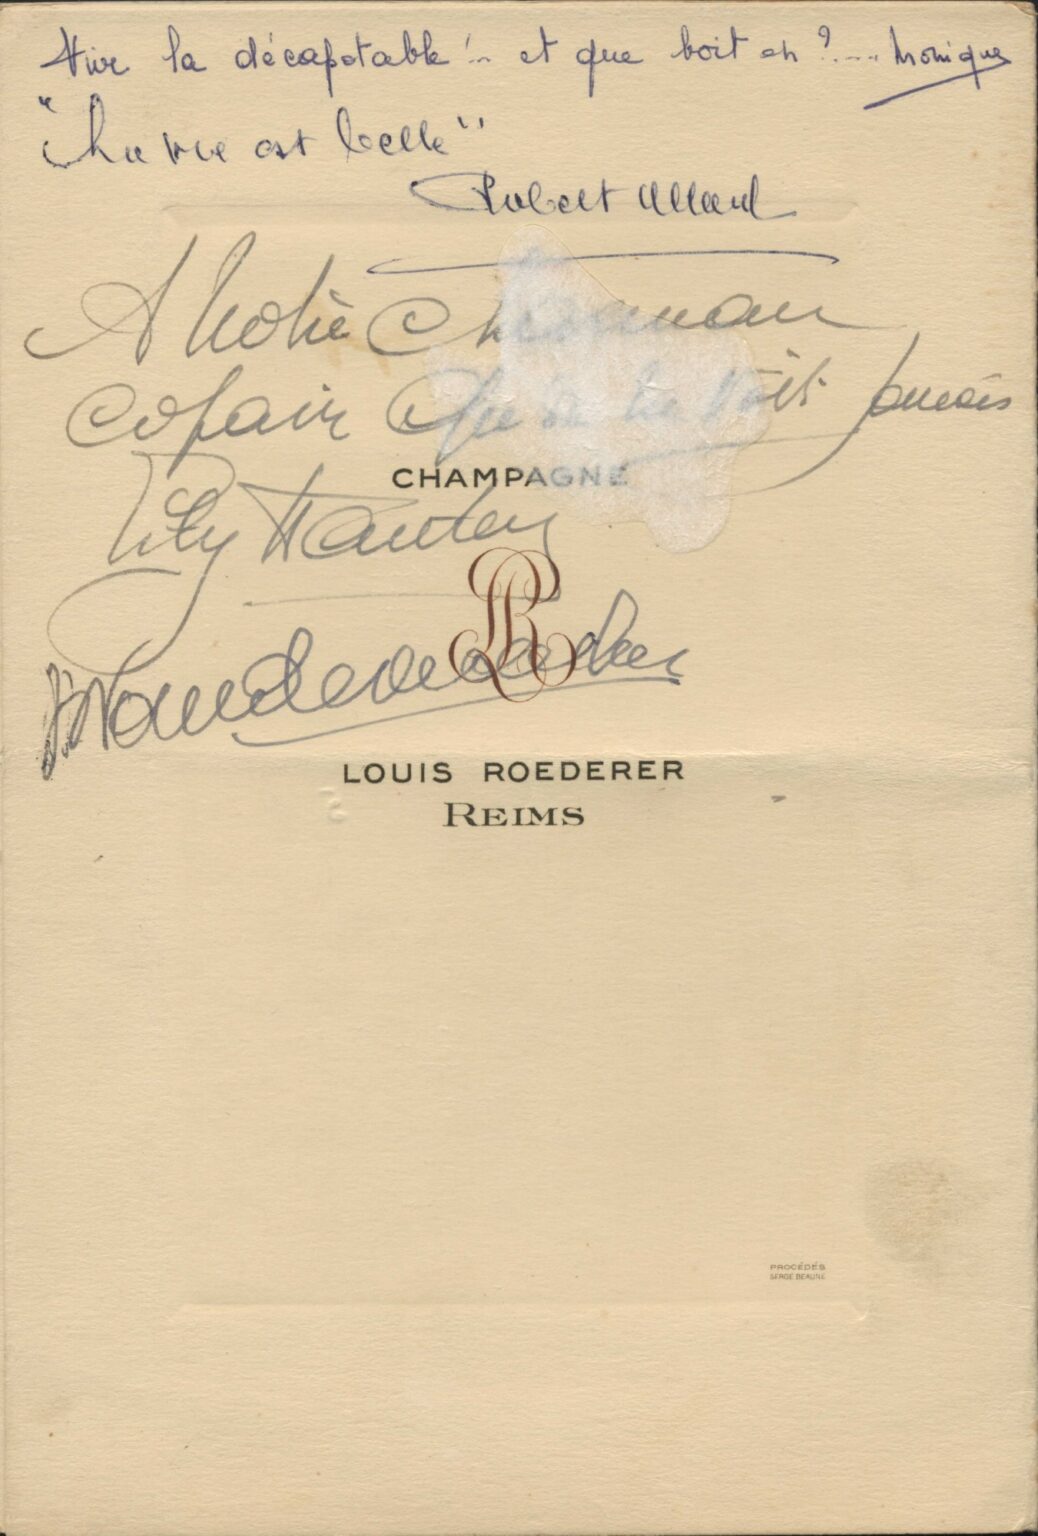 Vive la décapotable !.. et que boit on ?.... Monique
"La vie est belle"
Robert Allard
A Notre Charman
copain Que on ne voit jamais
CHAMPAGNE
Lily
LR
LOUIS ROEDERER
REIMS
PROCÉDÉS
SERGE BEAUNE